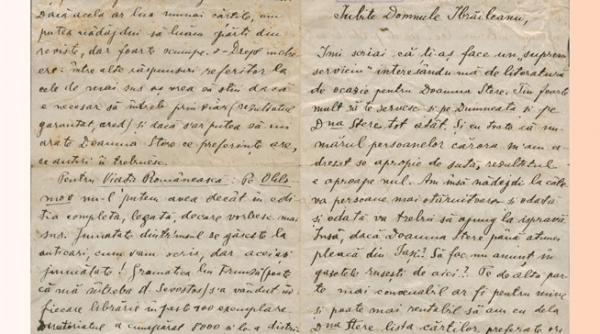 Dacă acela ar lua numai cărțile, am
putea nădăjdui să luăm părți din
reviste, dar foarte scumpe. Drept încheere:
între alte răspunsuri referitor la
cele de mai sus aș vrea să știu dacă
e necesar să întreb prin ziar (rezultatul
garantat, cred) și dacă s'ar putea să mi
arate Doamna Stere ce preferințe are,
ce autori îi trebuesc.
Pentru Viața Românească: Pe Oblomov
nu-l putem avea decât în ediția
completă, legată, de care vorbesc mai
sus. Jumătate dintr'însul se găsește la
anticari, cum v'am scris, dar aceiași
jumătate! Gramatica lui
că mă întreba d. Sevastos) s'a vândut în
fiecare librărie în 700 exemplare.
a cumpărat 8000 și le-a
Iubite Domnule Ibrăileanu,
Îmi scriai că ți-aș face un „suprem
serviciu” interesându-mă de literatura
de ocazie pentru Doamna Stere. Țin foarte
mult să te servesc și pe Dumneata și pe
Dna Stere tot atât. Și cu toate că numărul
persoanelor cărora m'am adresat
se apropie de sută, rezultatul
e aproape nul. Am însă nădejdi la câteva
persoane mai stăruitoare și odată
și odată va trebui să ajung la ispravă.
Însă, dacă Doamna Stere până atunci
pleacă din Iași? Să fac un anunț în
gazetele rusești de aici? Pe de altă parte
mai convenabil ar fi pentru mine
și poate mai rentabil să am cu dela
Dna Stere lista cărților preferate